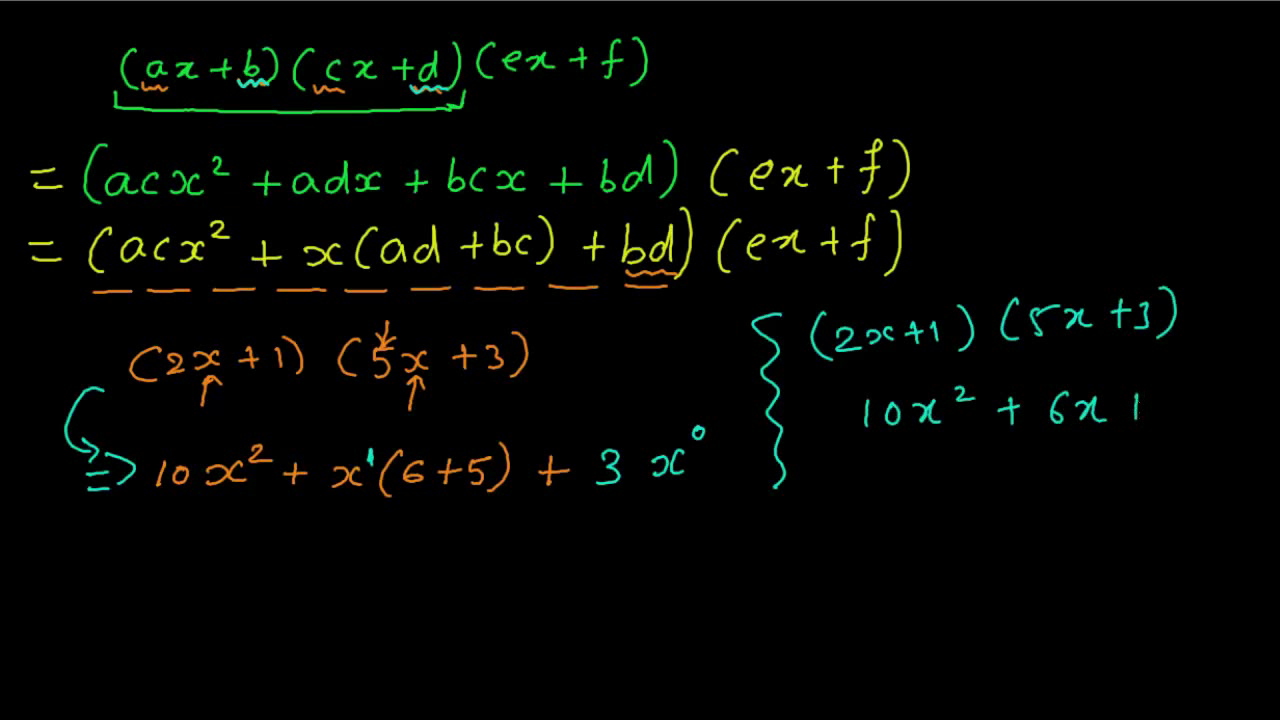 (ax+b)(cx+d)(ex+f)
= (acx² + adx + bcx + bd) (ex+f)
= (acx² + x(ad+bc) + bd) (ex+f)
(2x+1) (5x+3)
⇒ 10x² + x¹(6+5) + 3x⁰
(2x+1) (5x+3)
10x² + 6x 1